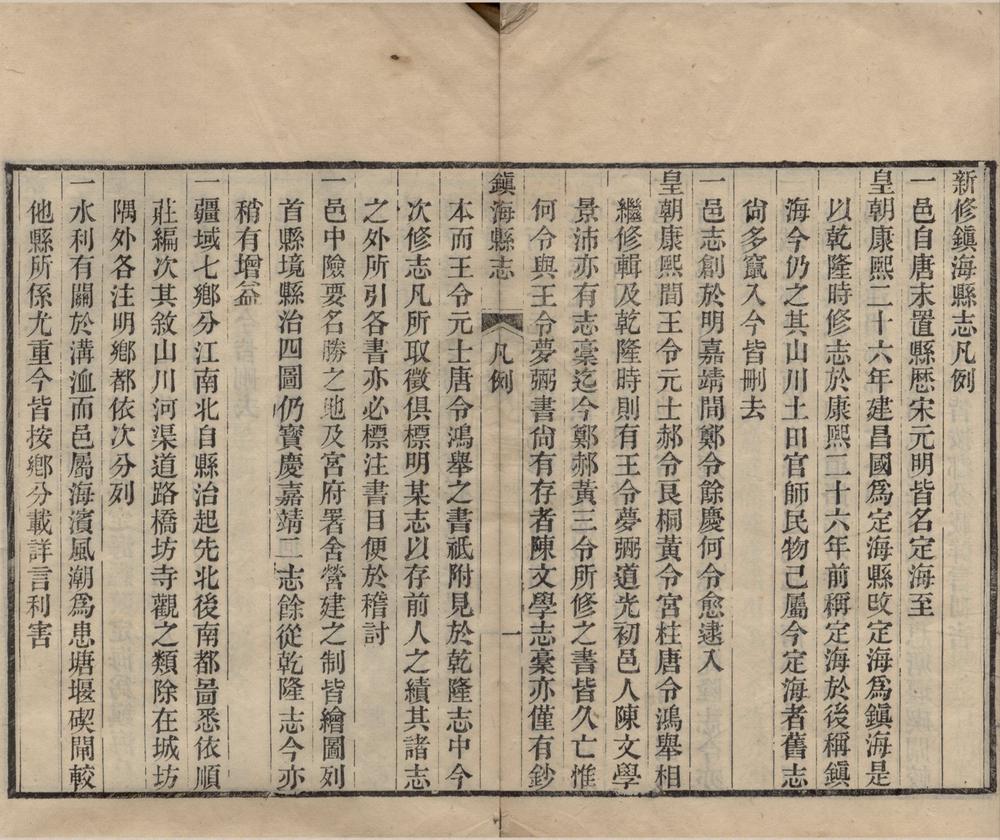 新修鎮海縣志凡例
一邑自唐末置縣歷宋元明皆名定海至
皇朝康熙二十六年建昌國爲定海縣改定海爲鎮海是
以乾隆時修志於康熙二十六年前稱定海於後稱鎮
海今仍之其山川土田官師民物已屬今定海者舊志
尙多竄入今皆刪去
一邑志創於明嘉靖間鄭令餘慶何令愈逮入
皇朝康熙間王令元士郝令良桐黃令宮柱唐令鴻舉相
繼修輯及乾隆時則有王令夢弼道光初邑人陳文學
景沛亦有志稾迄今鄭郝黃三令所修之書皆久亡惟
何令與王令夢弼書尙有存者陳文學志稾亦僅有鈔
鎮海縣志
凡例
一
本而王令元士唐令鴻舉之書祇附見於乾隆志中今
次修志凡所取徵俱標明某志以存前人之績其諸志
之外所引各書亦必標注書目便於稽討
一邑中險要名勝之地及宮府署舍營建之制皆繪圖列
首縣境縣治四圖仍寶慶嘉靖二志餘從乾隆志今亦
稍有增益
一疆域七鄉分江南北自縣治起先北後南都啚悉依順
莊編次其敘山川河渠道路橋坊寺觀之類除在城坊
隅外各注明鄉都依次分列
一水利有關於溝洫而邑屬海濱風潮爲患塘堰碶閘較
他縣所係尤重今皆按鄉分載詳言利害